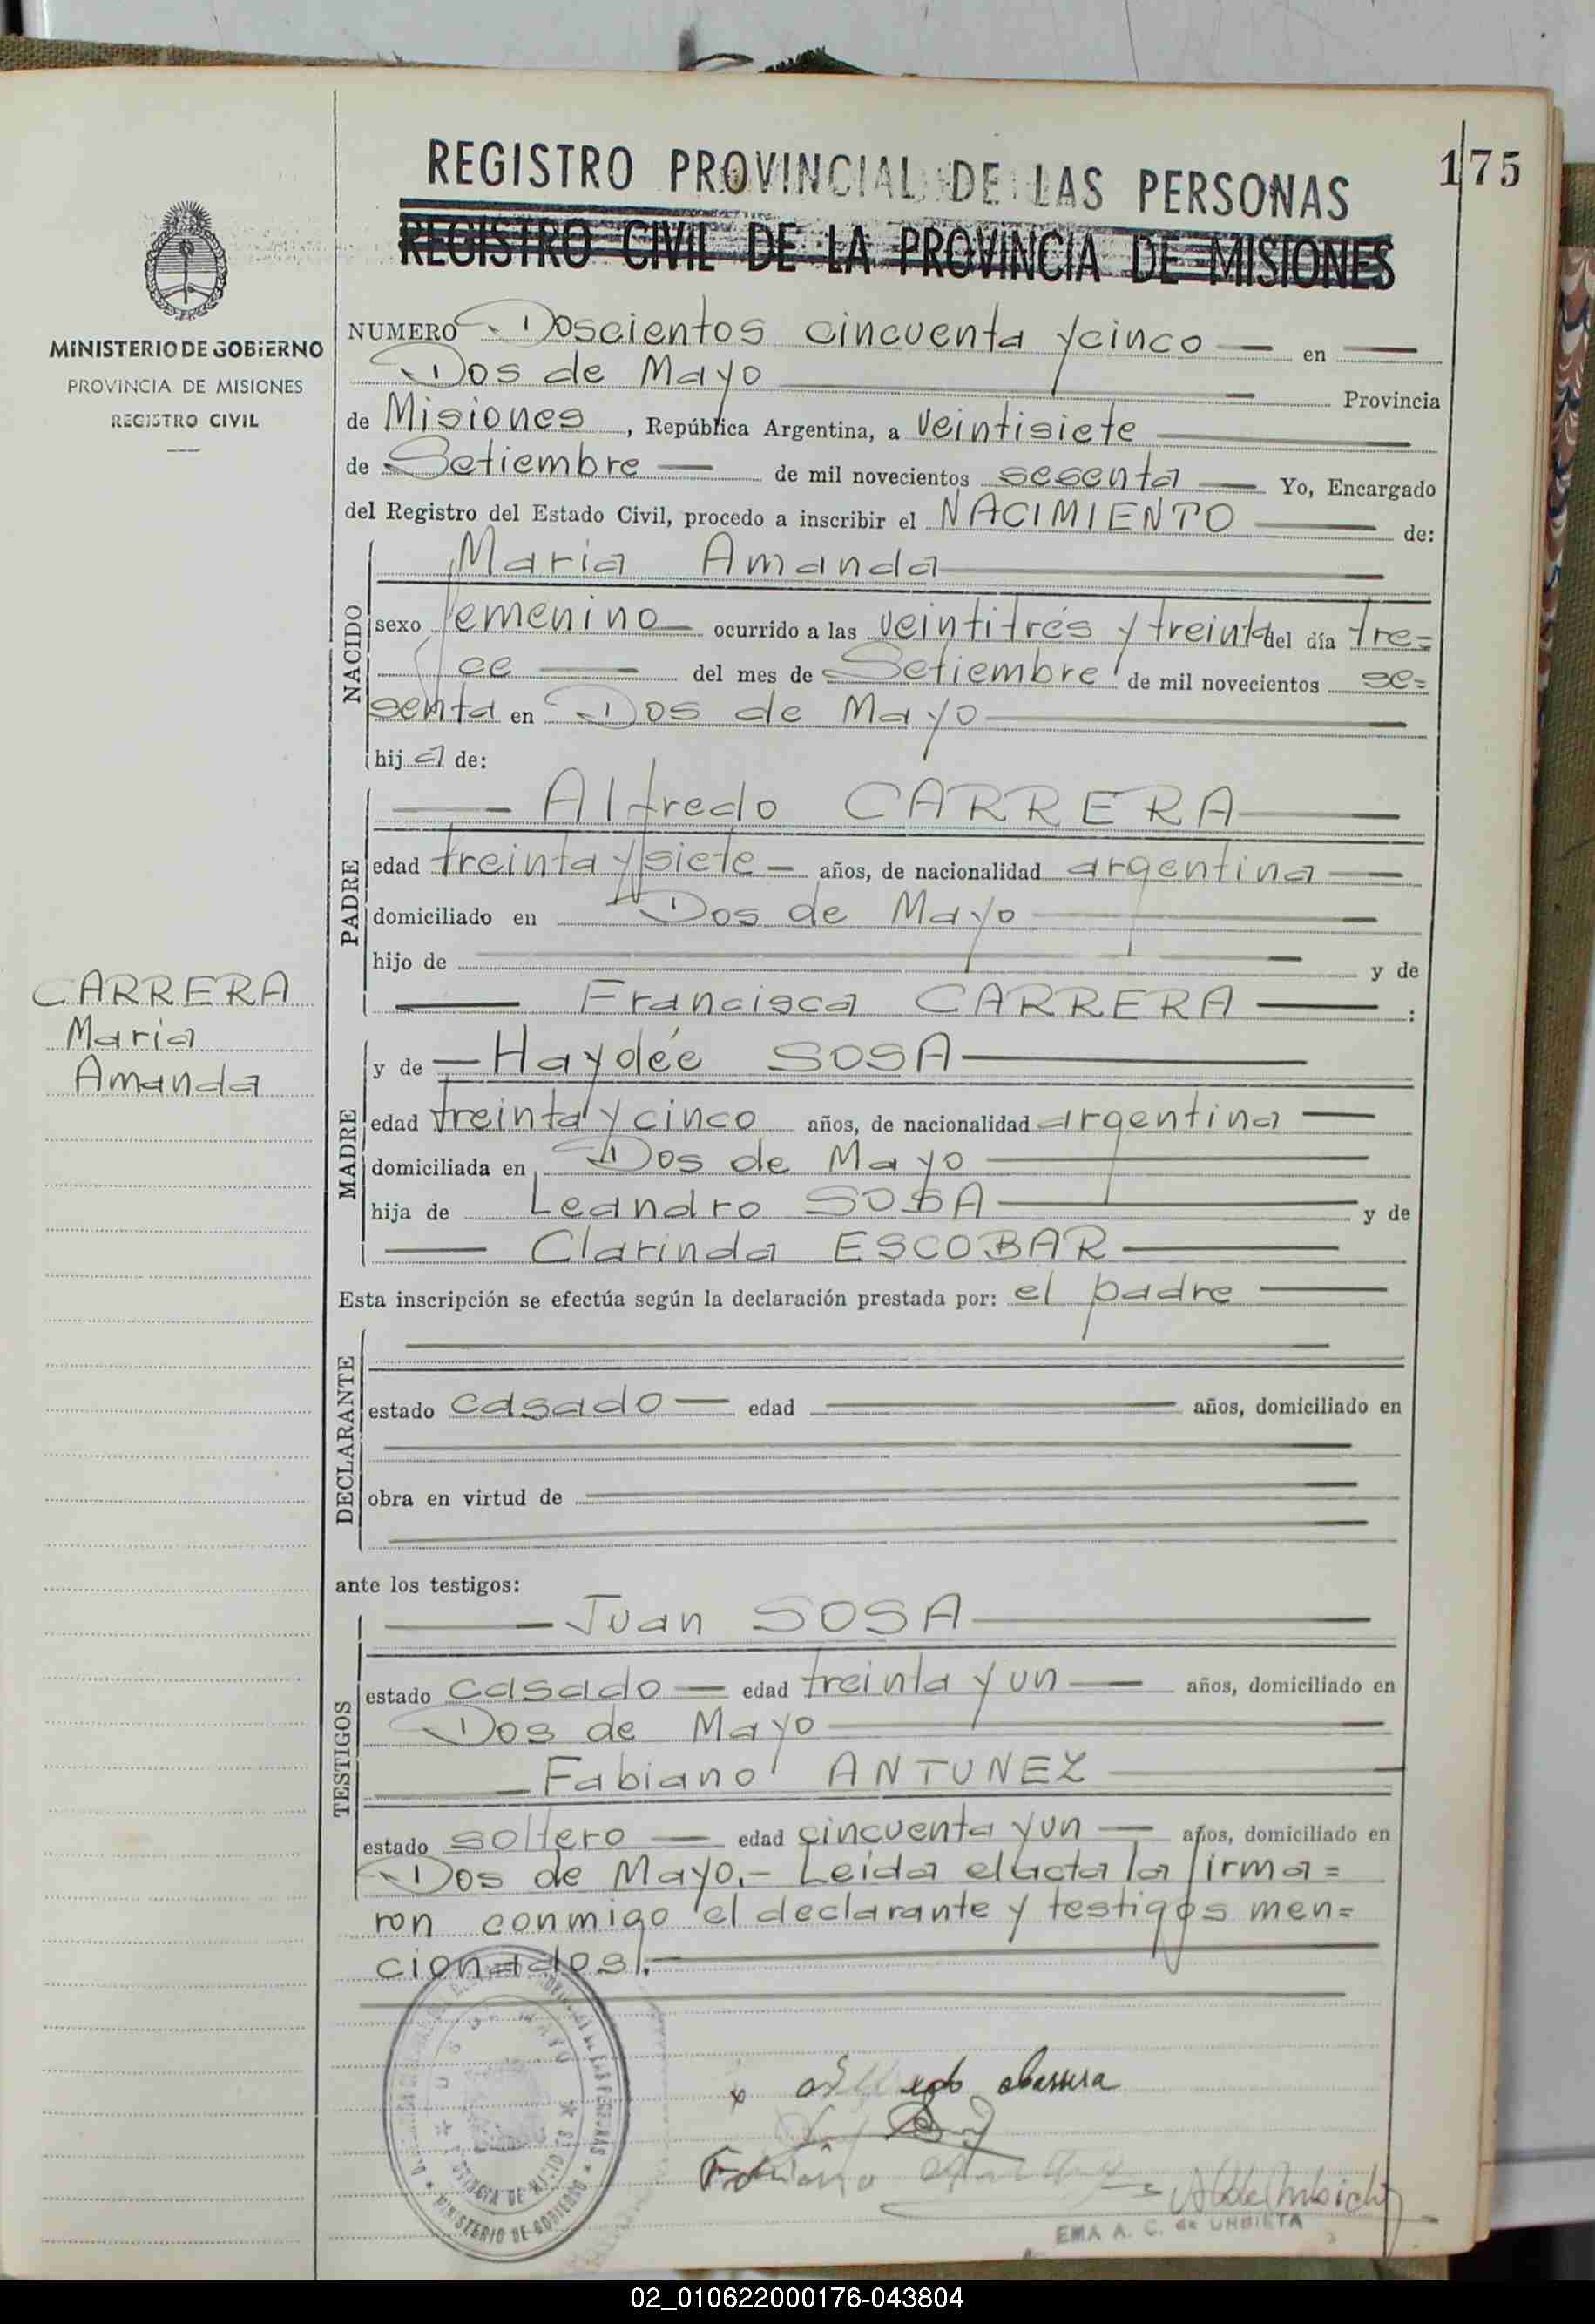 175
REGISTRO PROVINCIAL DE LAS PERSONAS
REGISTRO CIVIL DE LA PROVINCIA DE MISIONES
MINISTERIO DE GOBIERNO
PROVINCIA DE MISIONES
REGISTRO CIVIL
NUMERO Doscientos cincuenta y cinco en
Dos de Mayo Provincia
de Misiones, República Argentina, a veintisiete
de Setiembre de mil novecientos sesenta Yo, Encargado
del Registro del Estado Civil, procedo a inscribir el NACIMIENTO de:
NACIDO
Maria Amanda
sexo femenino ocurrido a las veintitrés y treinta del día tre=
ce del mes de Setiembre de mil novecientos se=
senta en Dos de Mayo
hija de:
PADRE
Alfredo CARRERA
edad treinta y siete años, de nacionalidad argentina
domiciliado en Dos de Mayo
hijo de y de
Francisca CARRERA :
CARRERA
Maria
Amanda
MADRE
y de Haydée SOSA
edad treinta y cinco años, de nacionalidad argentina
domiciliada en Dos de Mayo
hija de Leandro SOSA y de
Clarinda ESCOBAR
Esta inscripción se efectúa según la declaración prestada por: el padre
DECLARANTE
estado casado edad años, domiciliado en
obra en virtud de
ante los testigos:
TESTIGOS
Juan SOSA
estado casado edad treinta y un años, domiciliado en
Dos de Mayo
Fabiano ANTUNEZ
estado soltero edad cincuenta y un años, domiciliado en
Dos de Mayo.- Leida el acta la firma=
ron conmigo el declarante y testigos men=
cionados.
DOS DE MAYO
PROVINCIA DE MISIONES
MINISTERIO DE GOBIERNO
x Alfredo Carrera
Fabiano
EMA A. C. de URBIETA
02_010622000176-043804